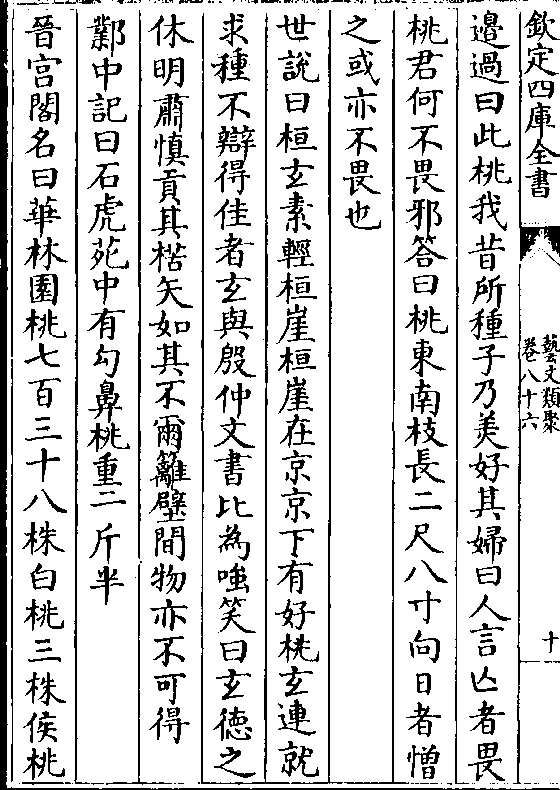 欽定四庫全書
藝文類聚
卷八十六
十
邉過曰此桃我昔所種子乃美好其婦曰人言亾者畏
桃君何不畏邪答曰桃東南枝長二尺八寸向日者憎
之或亦不畏也
世說曰桓玄素輕桓崖桓崖在京京下有好桃玄連就
求種不辯得佳者玄與殷仲文書比為嗤笑曰玄徳之
休明肅慎貢其楛矢如其不爾籬壁間物亦不可得
鄴中記曰石虎苑中有勾鼻桃重二斤半
晉宫閣名曰華林園桃七百三十八株白桃三株侯桃